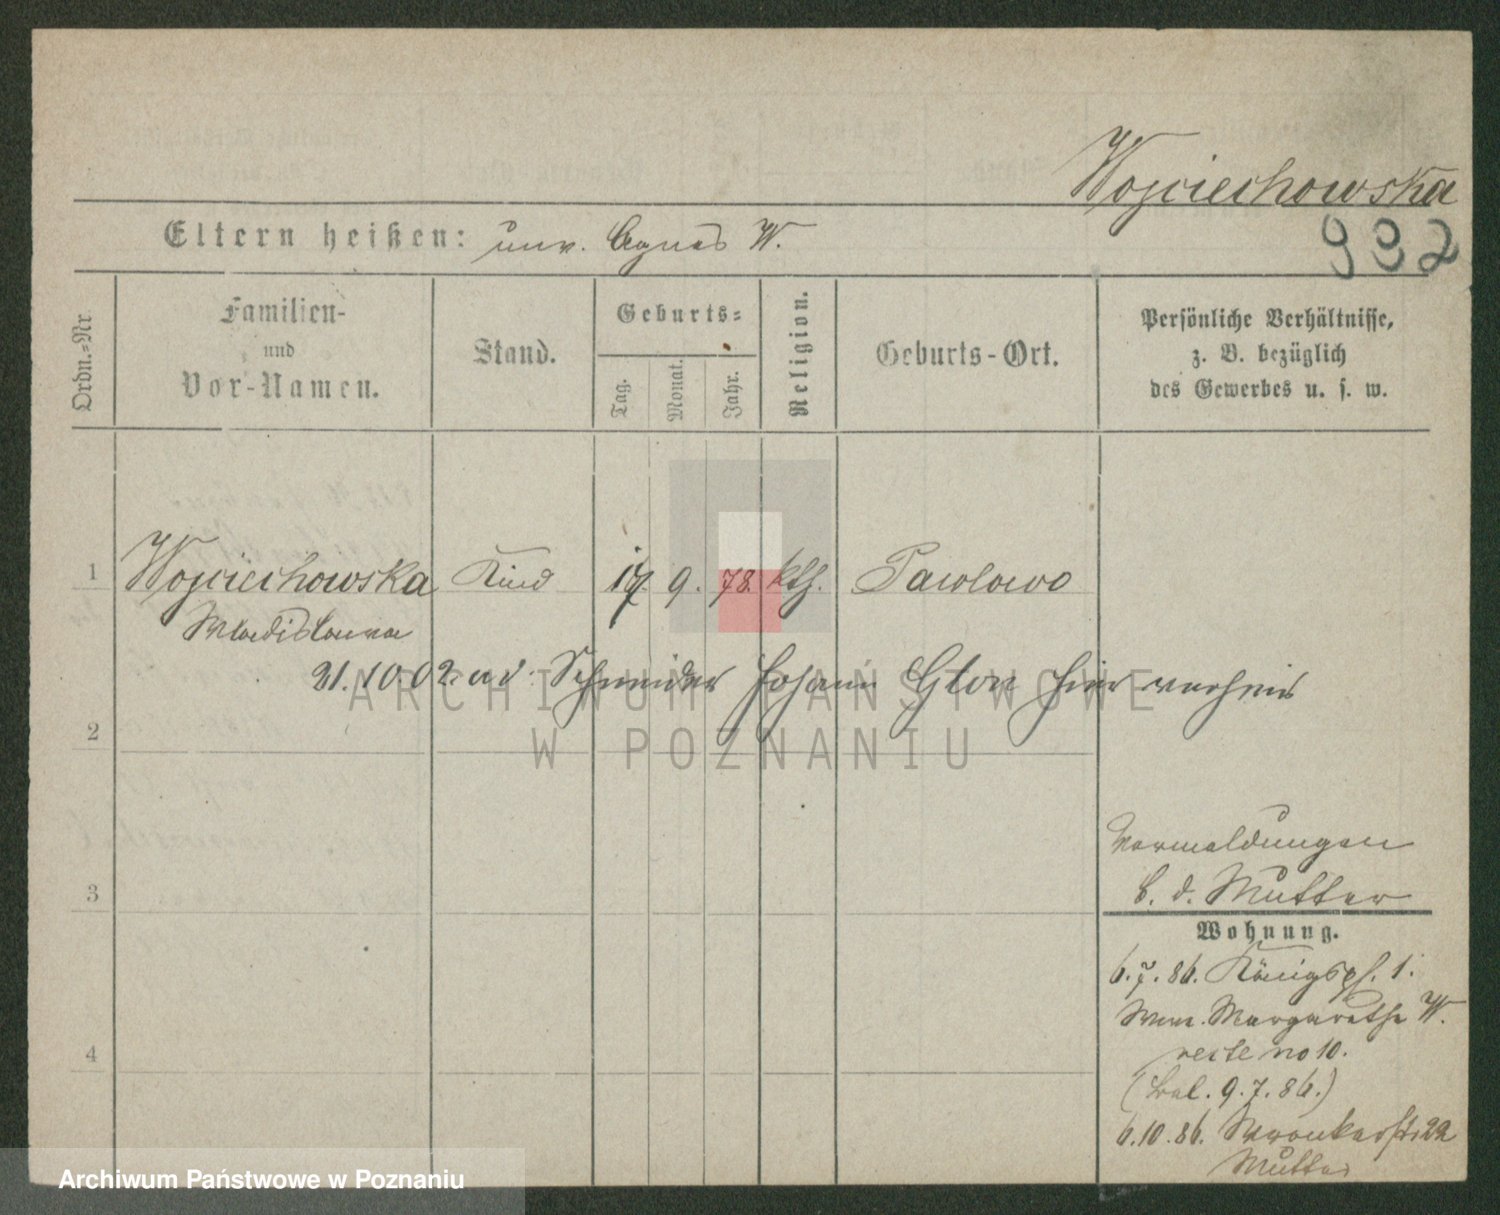 Wojciechowska
932
Eltern heißen: unv. Agnes W.
Ordn.-Nr
Familien-
und
Vor-Namen.
Stand.
Geburts-
Tag.
Monat.
Jahr.
Religion.
Geburts-Ort.
Persönliche Verhältnisse,
z. B. bezüglich
des Gewerbes u. s. w.
1 Wojciechowska Kind 17. 9. 78. kth. Pawlowo
Wladislawa
21.10.02 Schneider Johann hier verheir
2
3
4
Vermeldungen
b. d. Mutter
Wohnung.
6.7.86. Königspl. 1.
Wwe. Margarethe W.
recte no 10.
9.7.86.)
6.10.86. Wronkerstr 22
Mutter
ARCHIWUM PAŃSTWOWE
W POZNANIU
Archiwum Państwowe w Poznaniu